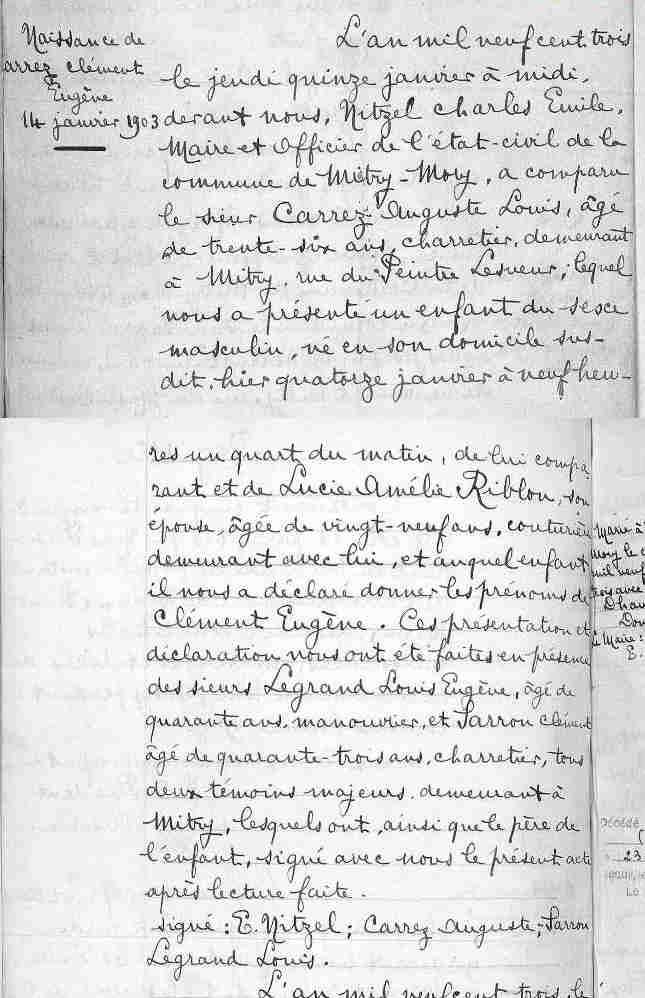 Naissance de
arrez Clément
Eugène
14 janvier 1903
L'an mil neuf cent trois
le jeudi quinze janvier à midi,
devant nous, Nitzel Charles Emile,
Maire et Officier de l'état-civil de la
commune de Mitry-Mory, a comparu
le sieur Carrez Auguste Louis, âgé
de trente-six ans, charretier, demeurant
à Mitry, rue du Peintre Lesueur, lequel
nous a présenté un enfant du sexe
masculin, né en son domicile sus-
dit, hier quatorze janvier à neuf heu-
res un quart du matin, de lui compa
rant et de Lucie Amélie Riblon, son
épouse, âgée de vingt-neuf ans, couturière
demeurant avec lui, et auquel enfant
il nous a déclaré donner les prénoms de
Clément Eugène. Ces présentation et
déclaration nous ont été faites en présence
des sieurs Legrand Louis Eugène, âgé de
quarante ans, manouvrier, et Sarron Clément
âgé de quarante-trois ans, charretier, tous
deux témoins majeurs, demeurant à
Mitry, lesquels ont, ainsi que le père de
l'enfant, signé avec nous le présent acte
après lecture faite.
signé: E. Nitzel; Carrez Auguste; Sarron
Legrand Louis.
L'an mil neuf cent trois, le
Marié à
Mory le
mil neuf
trois avec
Dha
Don
le Maire:
E.
23